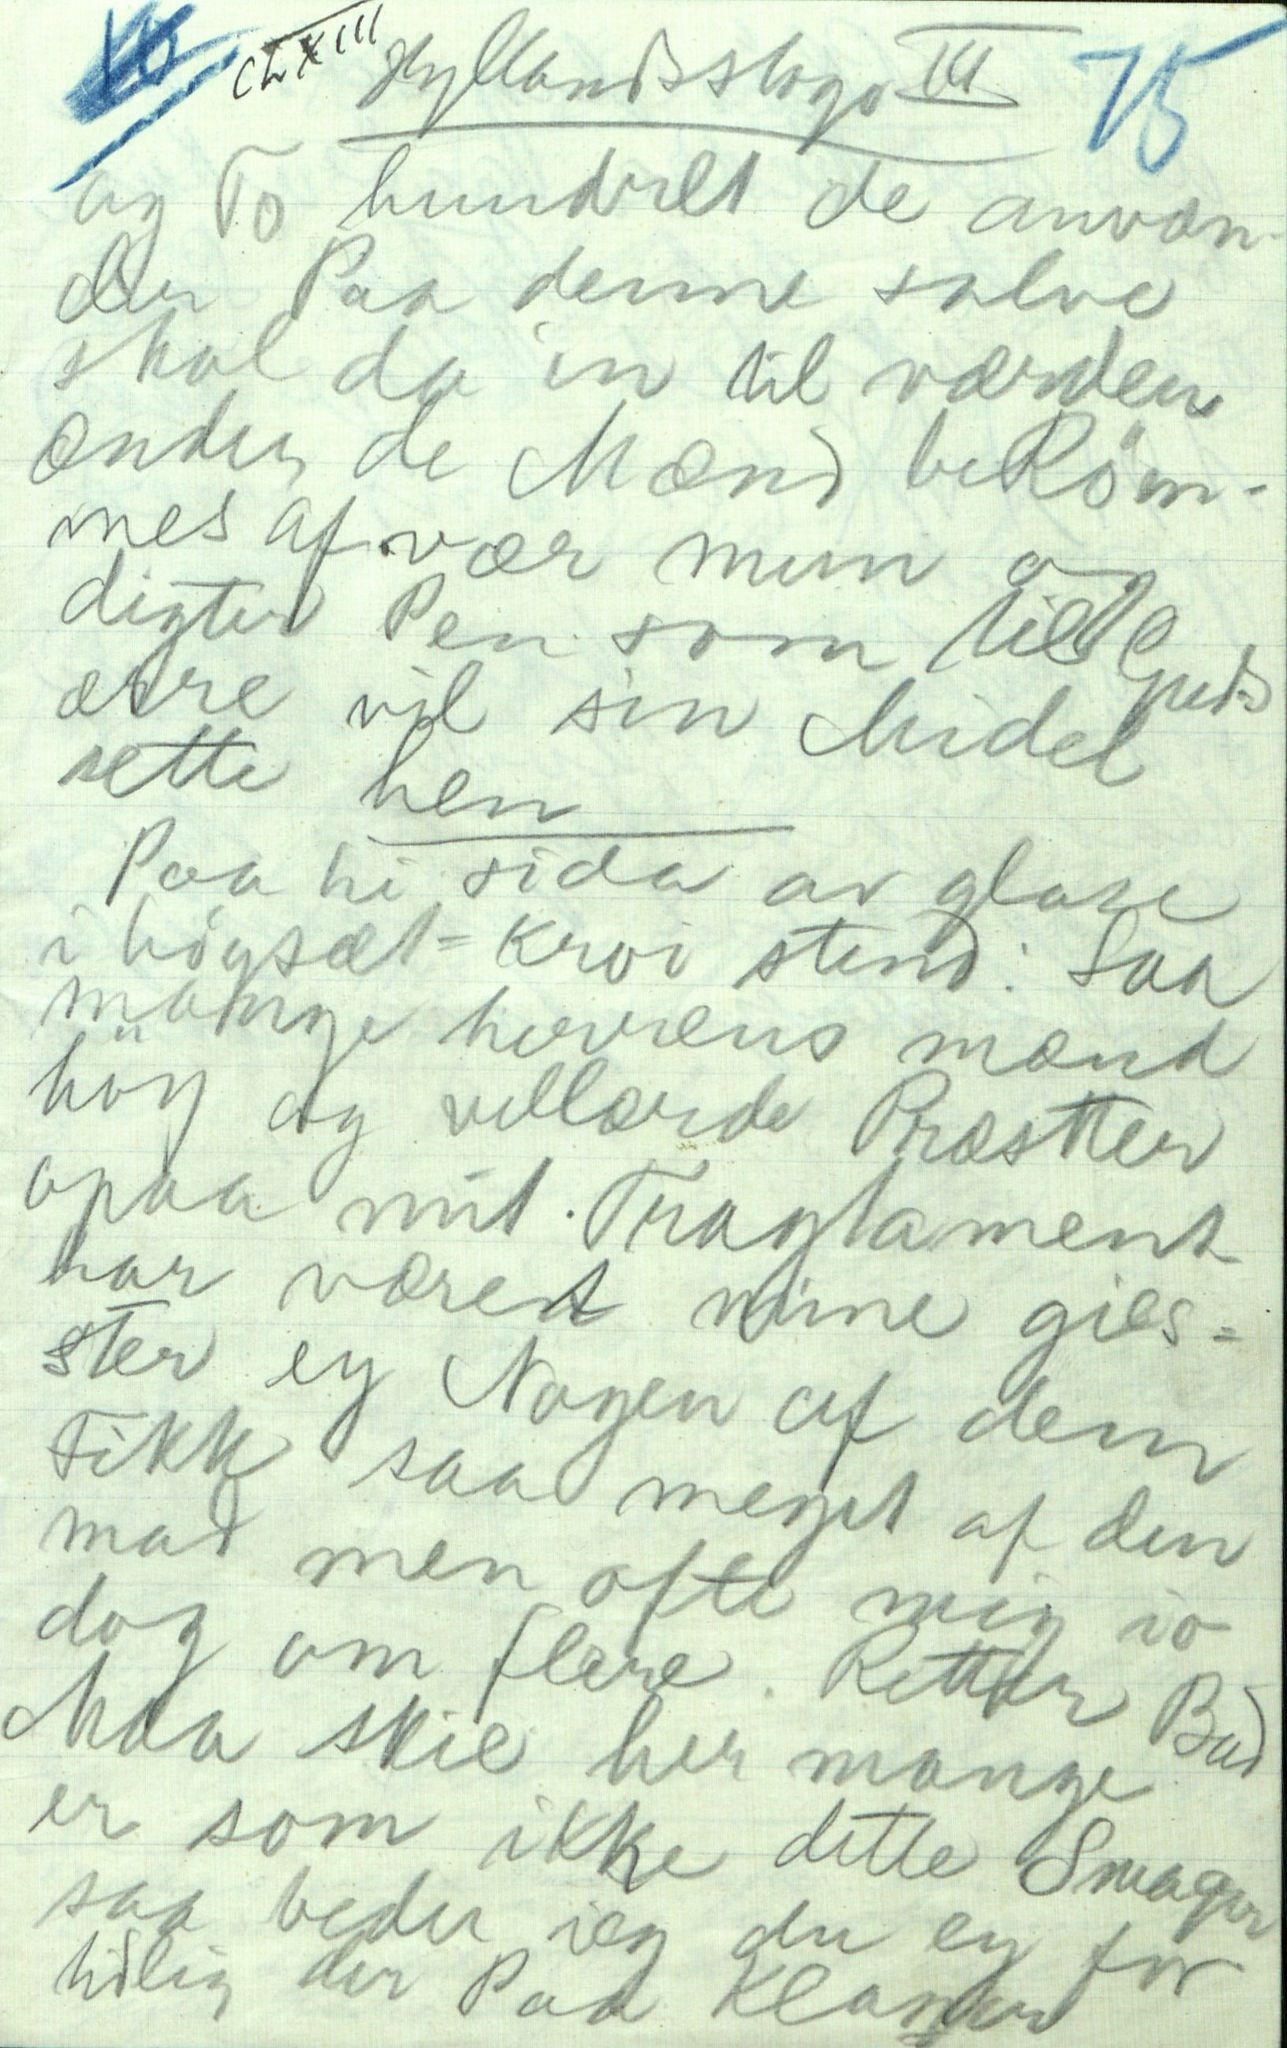 Ch XIII Hyllandsstogo III 75
og To hundrelt de anvæn-
der Paa denne salve
skal da in til værden
ender, de Mænd beRöm-
mes af vær mun og
digter Pen som til Guds
ærre vil sin Midel
sette hen
Paa hi sida av glase
i högsæt=kroi stend: Saa
mange herrens mænd
höy og vellærde Præstter
opaa mit Tragtament
har været mine gies=
ster ey Nogen af dem
Fikk saa meget af den
mad men ofte mig io
dog om flere Retter Bad
Maa skie her mange
er som ikke dette Smager
saa beder ieg du ey for
hilig der Paa Klanker